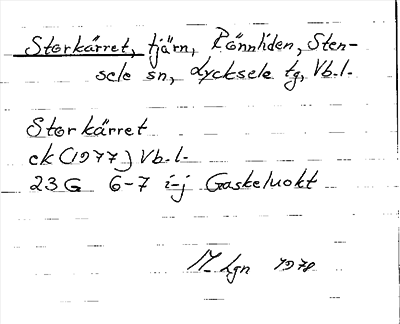 Storkärret, tjärn, Rönnliden, Sten-
sele sn, Lycksele tg, Vb.l.
Storkärret
ek (1977) Vb.l.
23G 6-7 i-j Gaskeluokt
M Lgn 1978